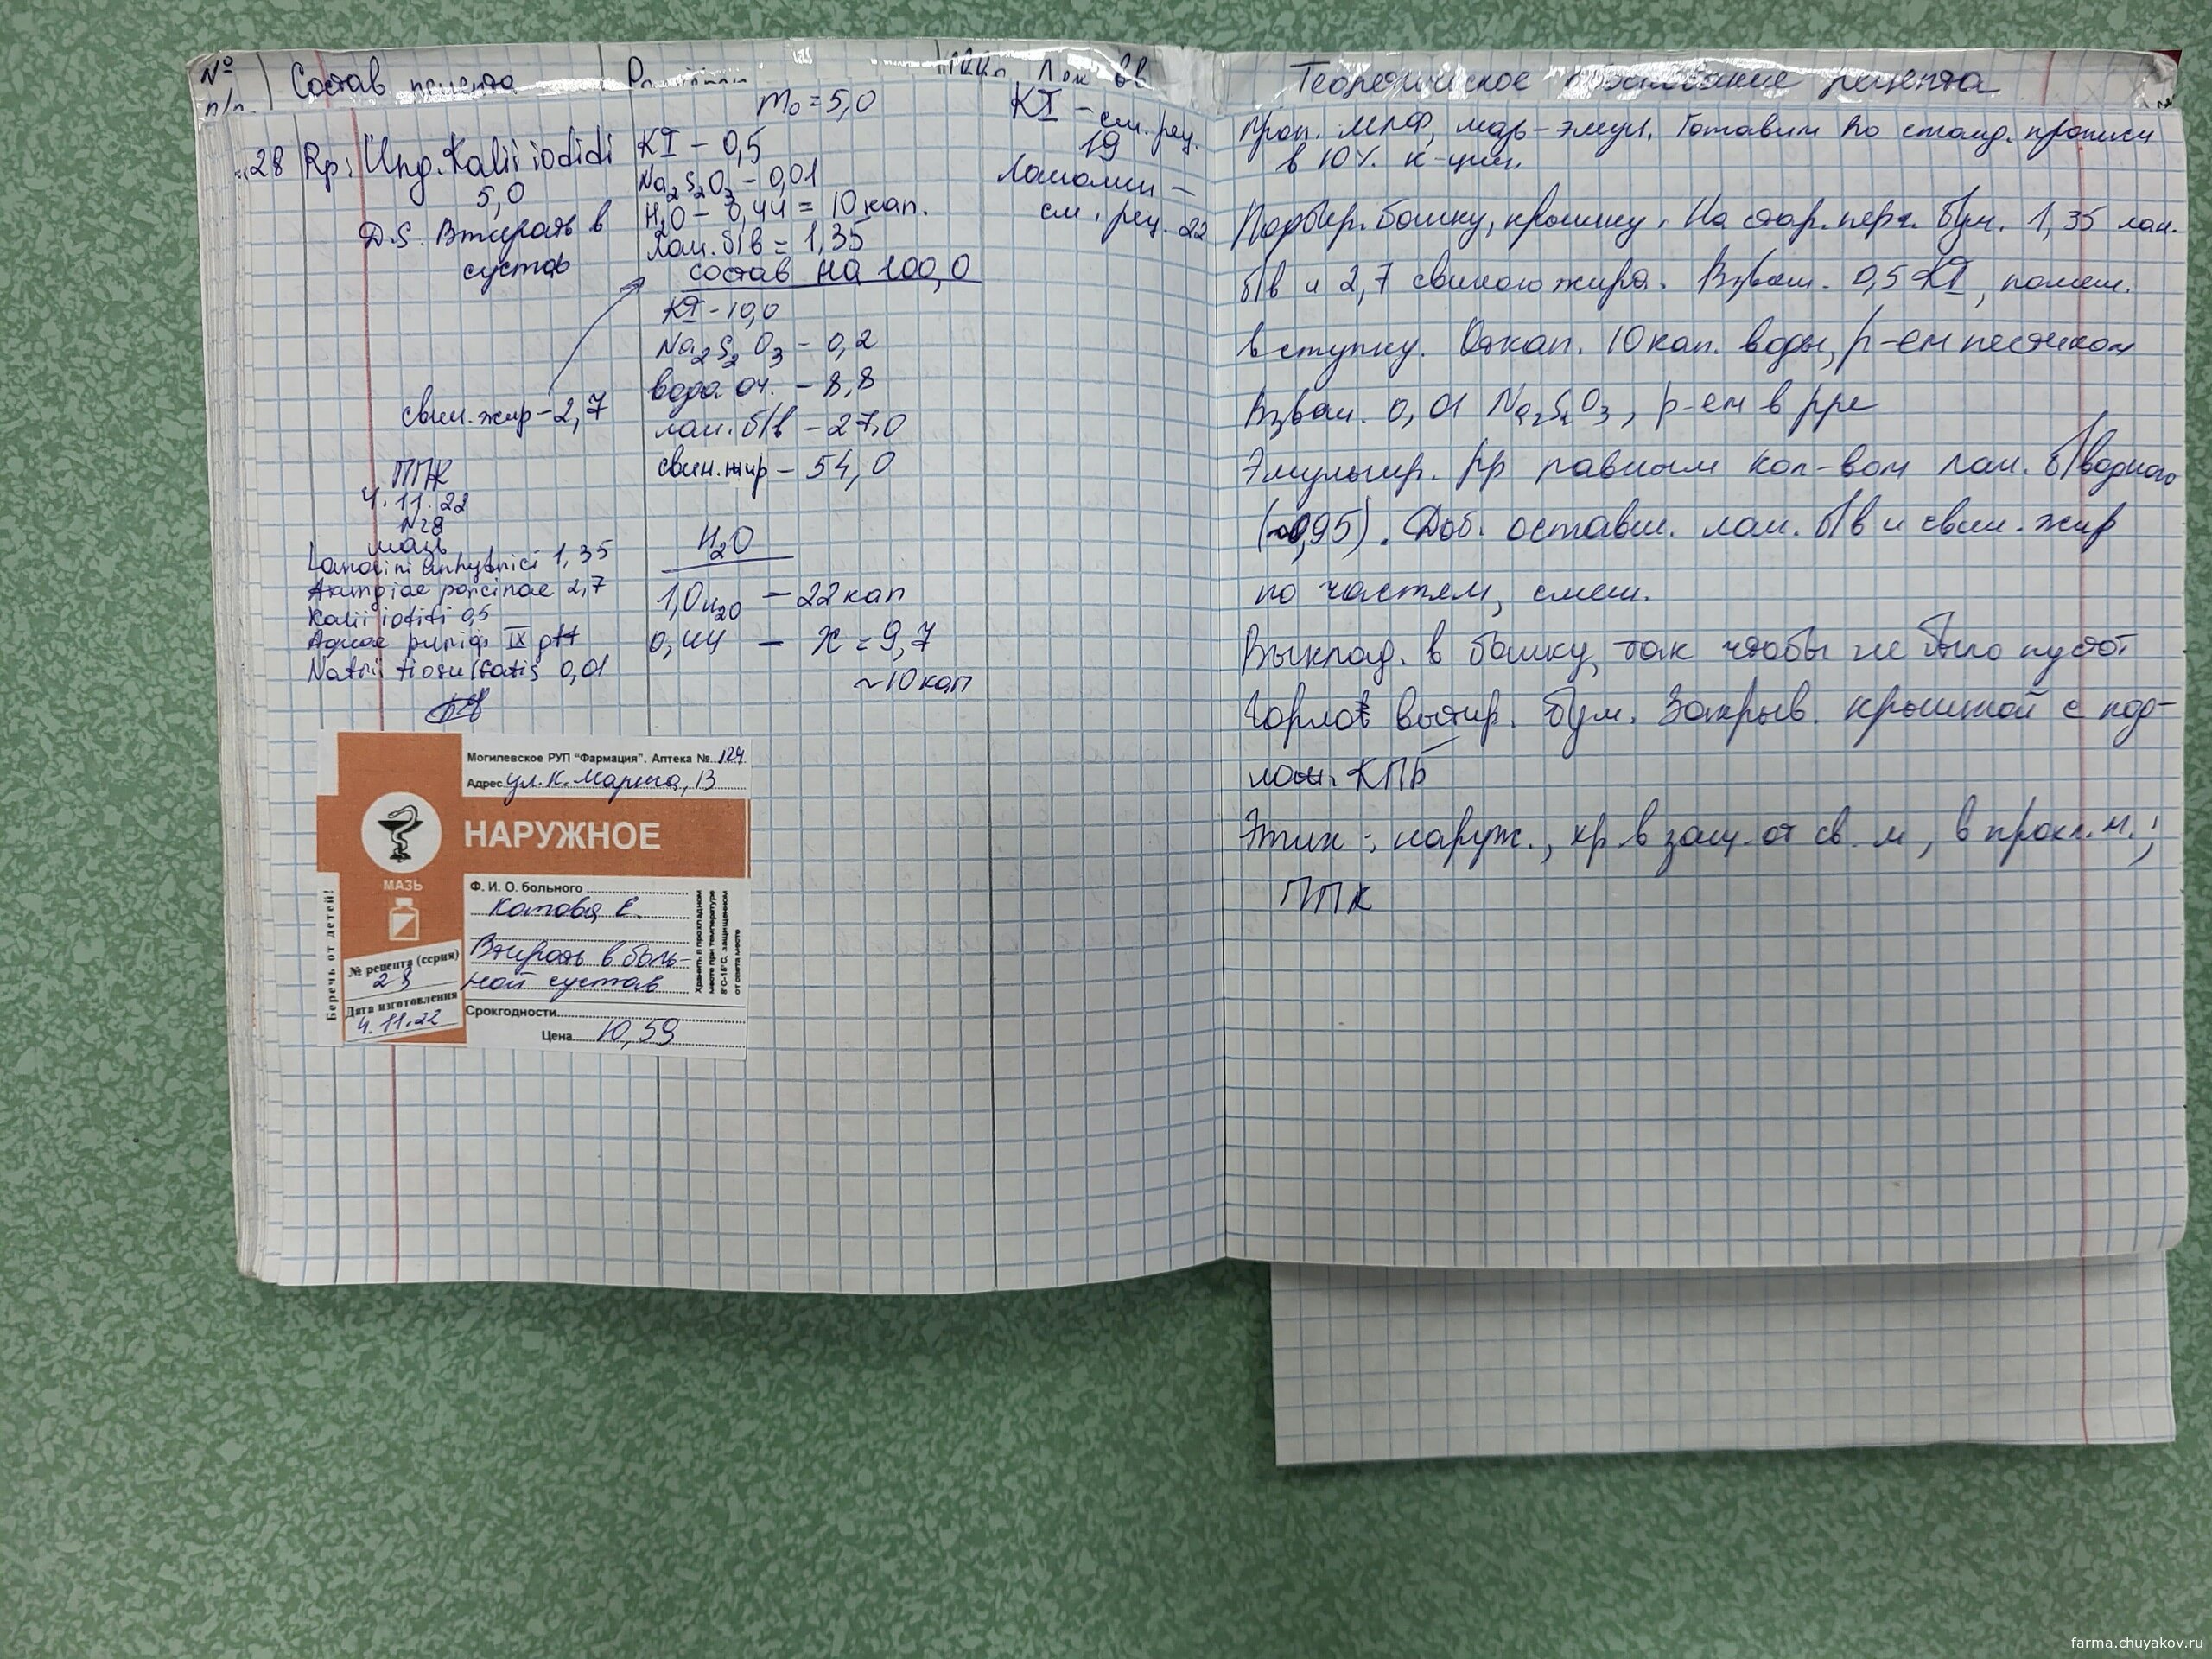 № п/п
Состав рецепта
Лек. вв
28 Rp: Ung. Kalii iodidi
5,0
D.S. Втирать в
сустав
свин. жир - 2,7
ППК
4.11.22
№28
мазь
Lanolini anhydrici 1,35
Axungiae porcinae 2,7
Kalii iodidi 0,5
Aquae purif. IX gtt
Natrii tiosulfatis 0,01
m₀ = 5,0
KI - 0,5
Na₂S₂O₃ - 0,01
H₂O - 0,44 = 10 кап.
Лан. б/в = 1,35
состав на 100,0
KI - 10,0
Na₂S₂O₃ - 0,2
вода оч. - 8,8
лан. б/в - 27,0
свин. жир - 54,0
H₂O
1,0 H₂O - 22 кап
0,44 - x = 9,7
~10 кап
KI - см. рец.
19
Ланолин -
см. рец. 22
Могилевское РУП "Фармация". Аптека № 124
Адрес ул. К. Маркса, 13
НАРУЖНОЕ
МАЗЬ
Беречь от детей!
№ рецепта (серия)
28
Дата изготовления
4.11.22
Ф. И. О. больного
Котова Е.
Втирать в боль-
ной сустав
Срок годности
Цена 10,59
Хранить в прохладном
месте при температуре
8°С-15°С, защищенном
от света месте
Теоретическое обоснование рецепта
Проп. МЛФ, мазь-эмул. Готовим по станд. прописи
в 10% к-ции.
Подбир. банку, крышку. На стар. перг. бум. 1,35 лан.
б/в и 2,7 свиного жира. Взвеш. 0,5 KI, помещ.
в ступку. Откап. 10 кап. воды, р-ем пестиком
Взвеш. 0,01 Na₂S₂O₃, р-ем в рре
Эмульгир. рр равным кол-вом лан. б/водного
(~0,95). Доб. оставш. лан. б/в и свин. жир
по частям, смеш.
Выклад. в банку, так чтобы не было пустот
Горло вытир. бум. Закрыв. крышкой с под-
лож. КПБ
Этик: наруж., хр. в защ. от св. м, в прохл. м.;
ППК
farma.chuyakov.ru